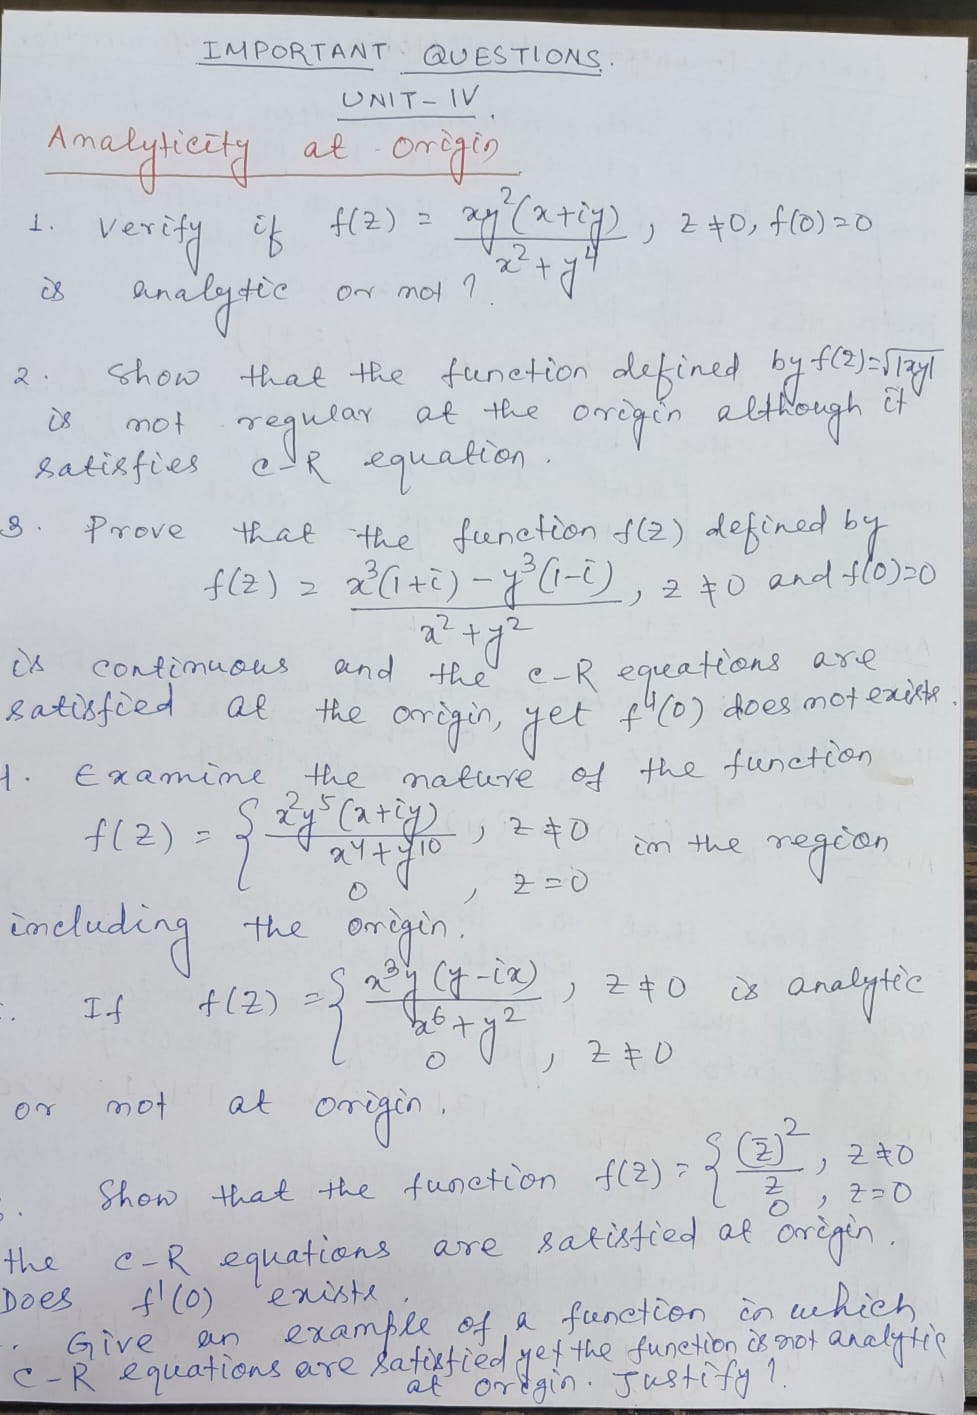 IMPORTANT QUESTIONS.
UNIT-IV.
Analyticity at origin
1. Verify if f(z) = xy²(x+iy)/(x²+y⁴), z≠0, f(0)=0
is analytic or not?
2. Show that the function defined by f(z)=√|xy|
is not regular at the origin although it
satisfies C-R equation.
3. Prove that the function f(z) defined by
f(z) = (x³(1+i) - y³(1-i))/(x²+y²), z≠0 and f(0)=0
is continuous and the C-R equations are
satisfied at the origin, yet f'(0) does not exists.
4. Examine the nature of the function
f(z) = { x²y⁵(x+iy)/(x⁴+y¹⁰), z≠0 in the region
0, z=0
including the origin.
If f(z) = { x³y(y-ix)/(x⁶+y²), z≠0 is analytic
0, z≠0
or not at origin.
Show that the function f(z) = { (z̄)²/z, z≠0
0, z=0
the C-R equations are satisfied at origin.
Does f'(0) exists.
Give an example of a function in which
C-R equations are satisfied yet the function is not analytic
at origin. Justify?